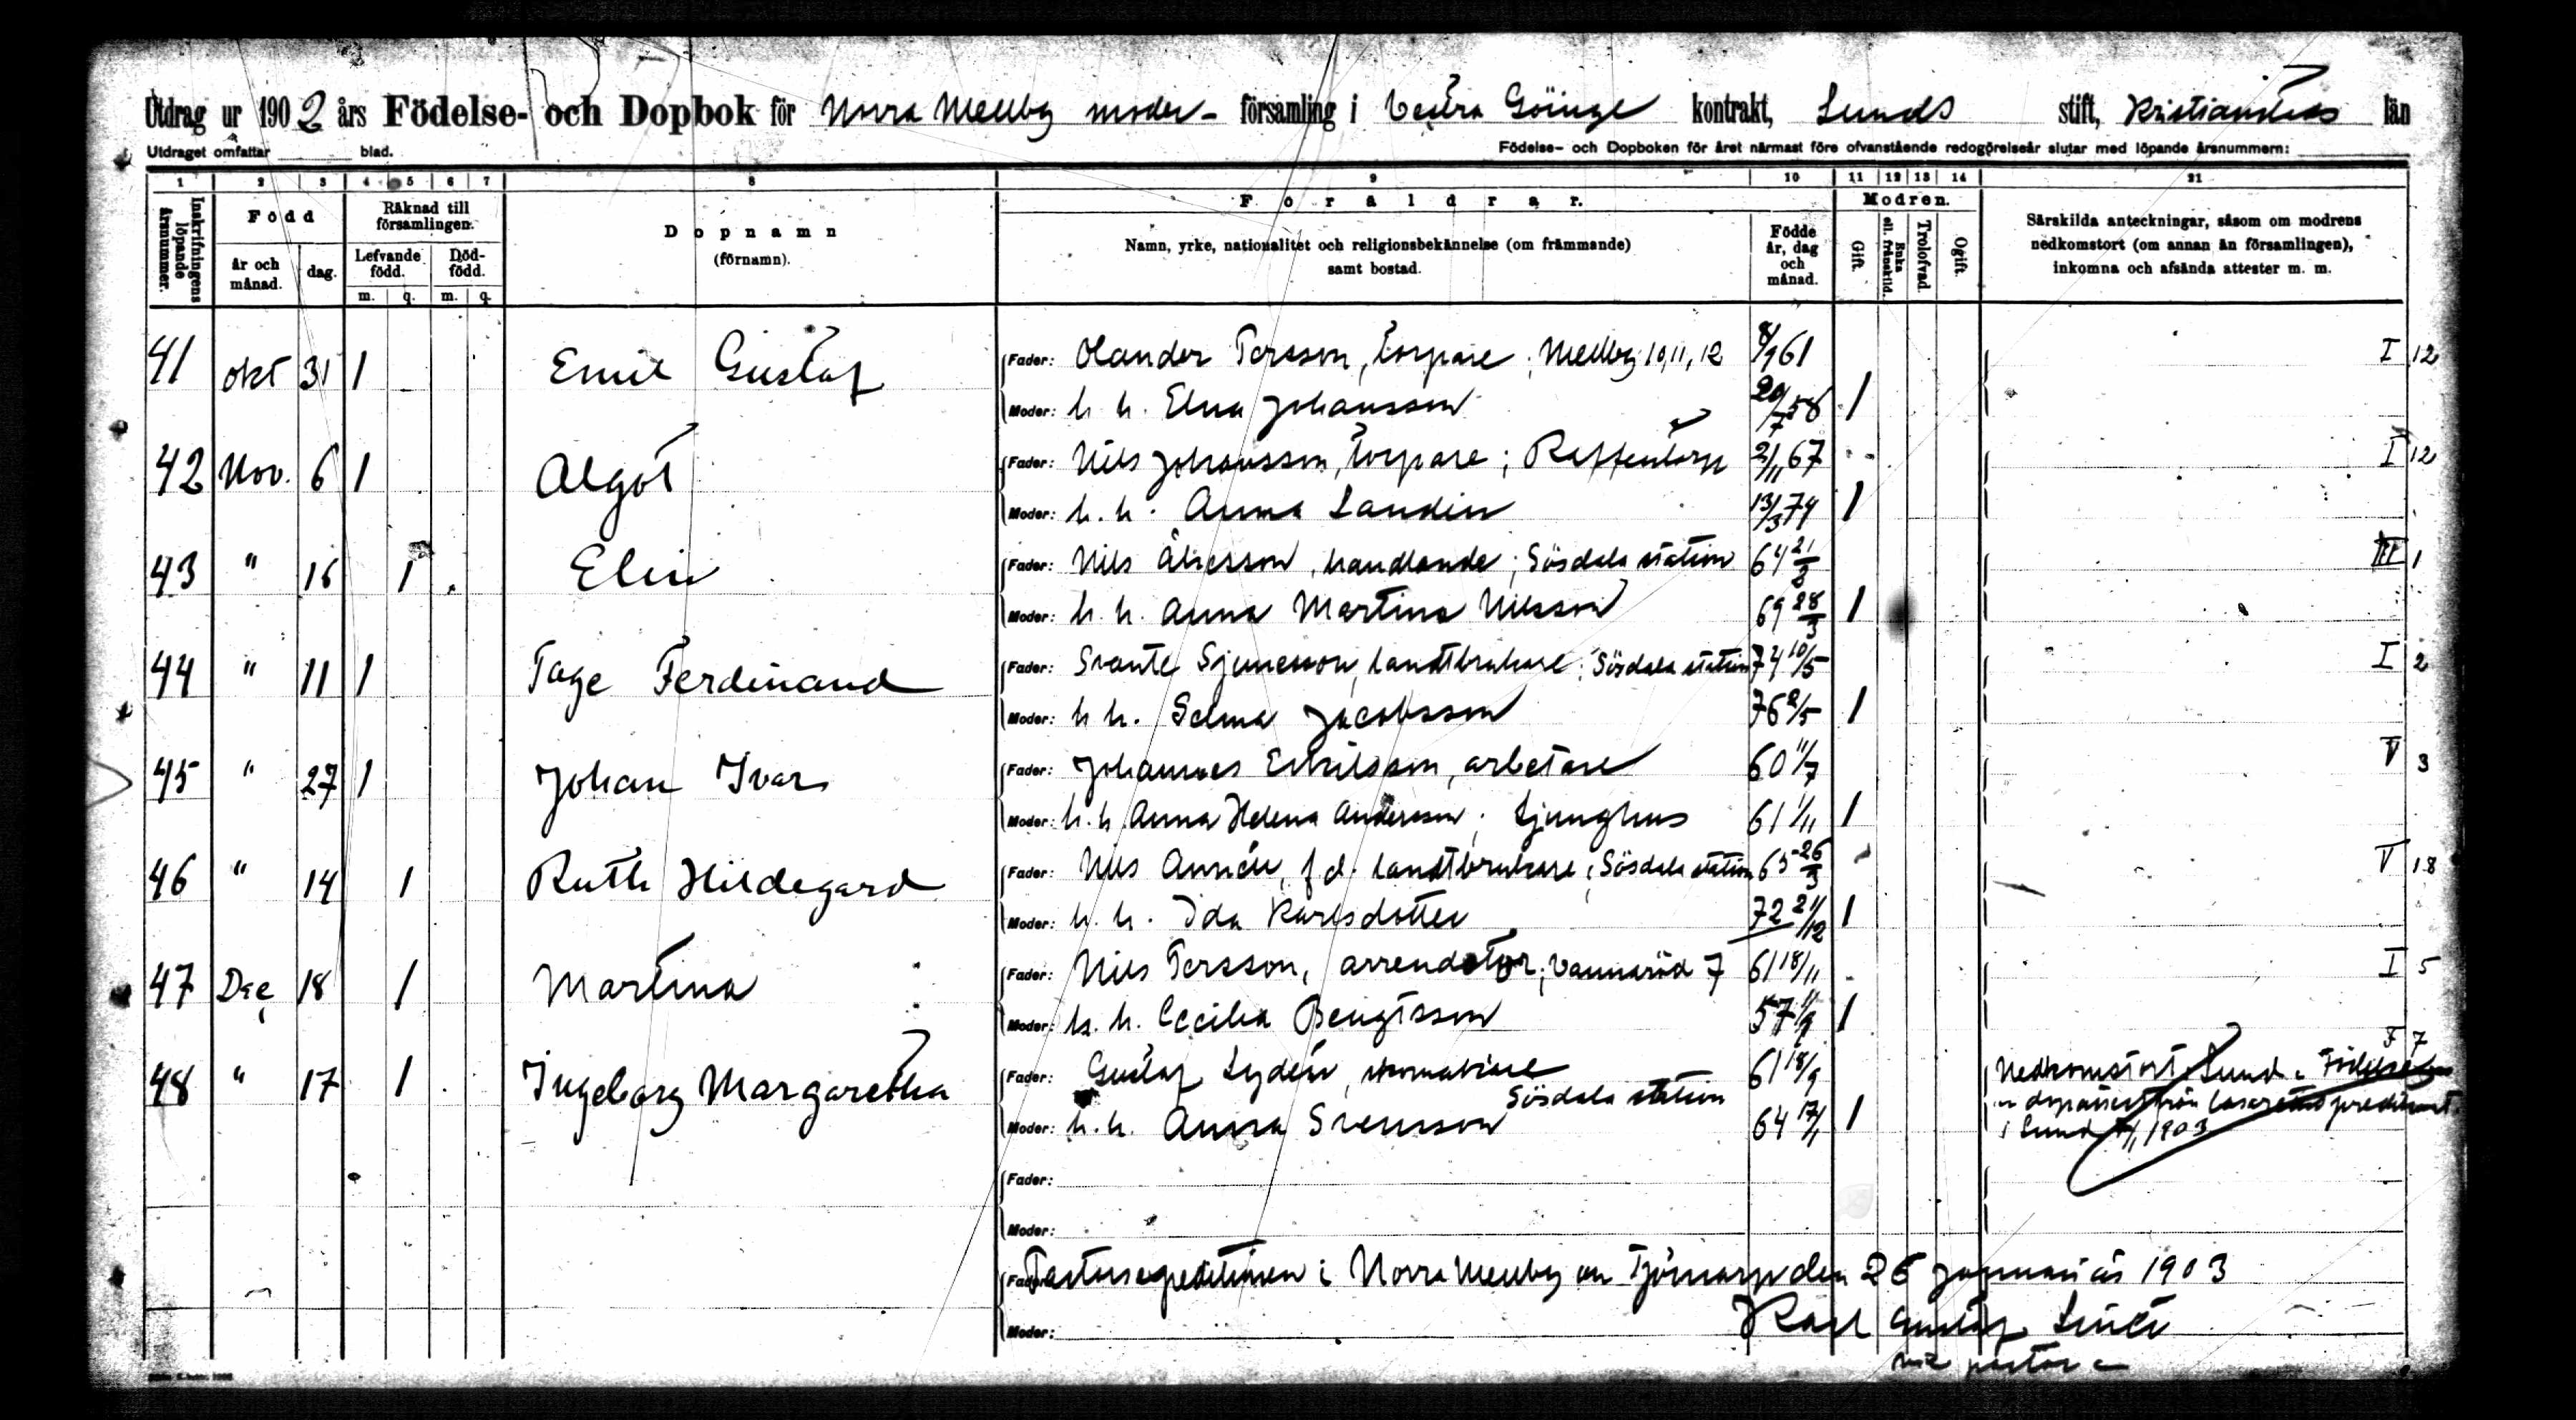 Utdrag ur 1902 års Födelse- och Dopbok för Norra Mellby moder- församling i Vestra Göinge kontrakt, Lunds stift, Kristianstads län
Utdraget omfattar blad. Födelse- och Dopboken för året närmast före ofvanstående redogörelseår slutar med löpande årsnummern:
1 2 3 4 5 6 7 8 9 10 11 12 13 14 21
Inskrifningens löpande årsnummer.
Född
år och månad.
dag.
Räknad till församlingen.
Lefvande född.
Död-född.
m. q. m. q.
Dopnamn
(förnamn).
Föräldrar.
Namn, yrke, nationalitet och religionsbekännelse (om främmande)
samt bostad.
Födde år, dag och månad.
Modren.
Gift.
Enka ell. frånskild.
Trolofvad.
Ogift.
Särskilda anteckningar, såsom om modrens
nedkomstort (om annan än församlingen),
inkomna och afsända attester m. m.
41 okt 31 1 Emil Gustaf Fader: Olander Persson, torpare; Mellby 10, 11, 12 61 I 12
Moder: h. h. Elna Johansson 20/7 58 1
42 Nov. 6 1 Algot Fader: Nils Johansson, torpare; 2/11 67 I 12
Moder: h. h. Anna Landin 13/3 74 1
43 " 16 1 Elin Fader: Nils handlande; Sösdala station 64 III 1
Moder: h. h. Anna Martina Nilsson 69 28/3 1
44 " 11 1 Tage Ferdinand Fader: Svante Sjunesson, landtbrukare; Sösdala station 74 10/5 I 2
Moder: h. h. Selma Jacobsson 76 2/5 1
45 " 27 1 Johan Ivar Fader: Johannes Eskilsson, arbetare 60 11/7 V 3
Moder: h. h. Anna Helena Andersson; Ljunghus 61 1/11 1
46 " 14 1 Ruth Hildegard Fader: Nils Annéll, f. d. landtbrukare; Sösdala station 65 26/3 V 18
Moder: h. h. Ida Karlsdotter 72 21/12 1
47 Dec 18 1 Martina Fader: Nils Persson, arrendator; Vannaröd 7 61 18/11 I 5
Moder: h. h. Cecilia Bengtsson 57 11/9 1
48 " 17 1 Ingeborg Margaretha Fader: Gustaf Lydén, skomakare 61 18/9 7
Sösdala station
Moder: h. h. Anna Svensson 64 17/1 1
Nedkomstort Lund. Födelse
från lasarettspredikant
i Lund 1903
Fader:
Moder:
Fader: Pastorsexpeditionen i Norra Mellby och Tjörnarp den 26 januari 1903
Moder: Karl Gustaf
vice pastor